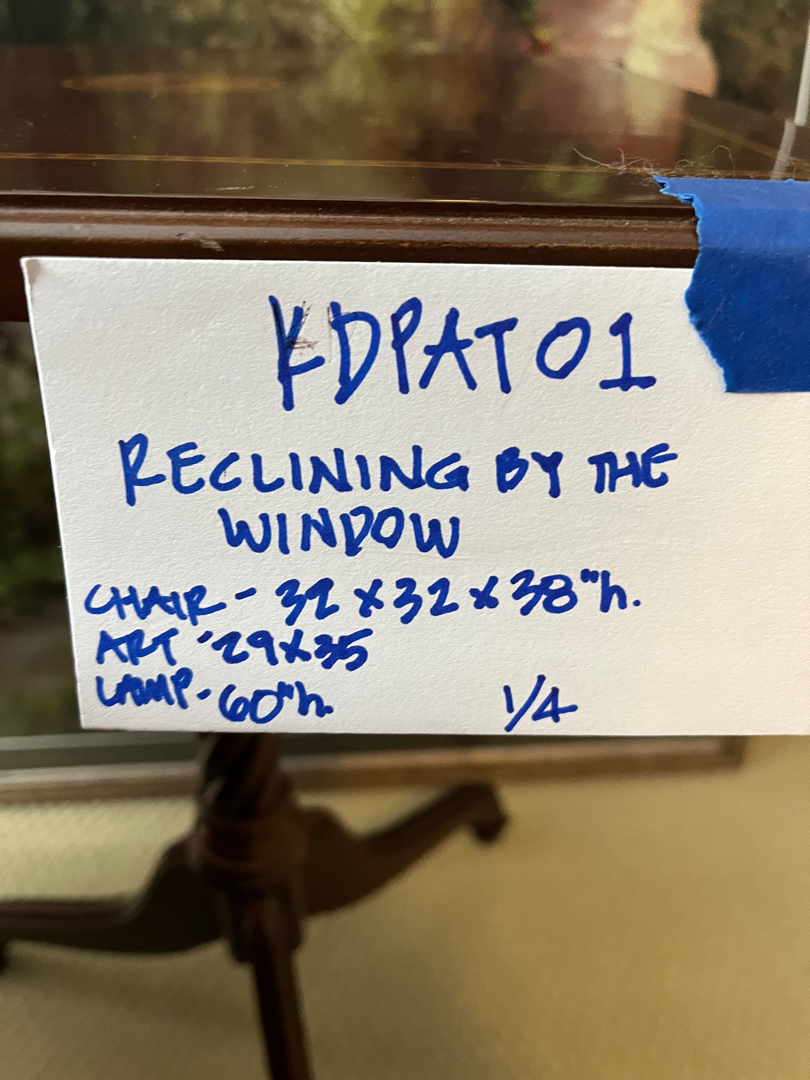 KDPAT01
RECLINING BY THE
WINDOW
CHAIR - 32 x 32 x 38"h.
ART - 29x35
LAMP - 60"h.
1/4